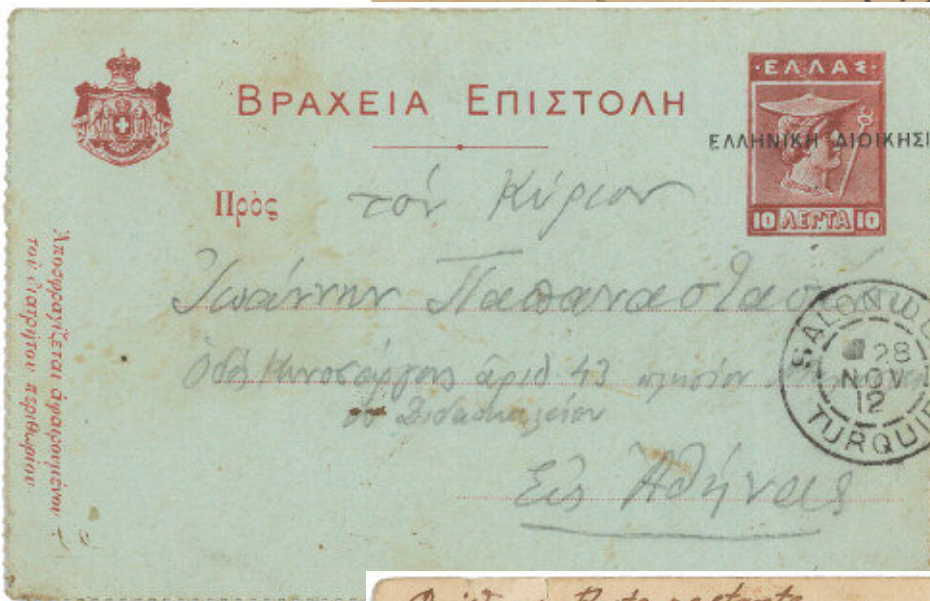 ΒΡΑΧΕΙΑ ΕΠΙΣΤΟΛΗ
·ΕΛΛΑΣ·
ΕΛΛΗΝΙΚΗ ΔΙΟΙΚΗΣΙ
10 ΛΕΠΤΑ 10
Πρὸς τόν Κύριον
Ἰωάννην
Ὁδός ἀριθ 43 πλησίον
Διδασκαλείου
Εἰς Ἀθήνας
SALONIQUE
28
NOV
12
TURQUIE
Ἀποσφραγίζεται ἀφαιρουμένου
τοῦ διατρήτου περιθωρίου